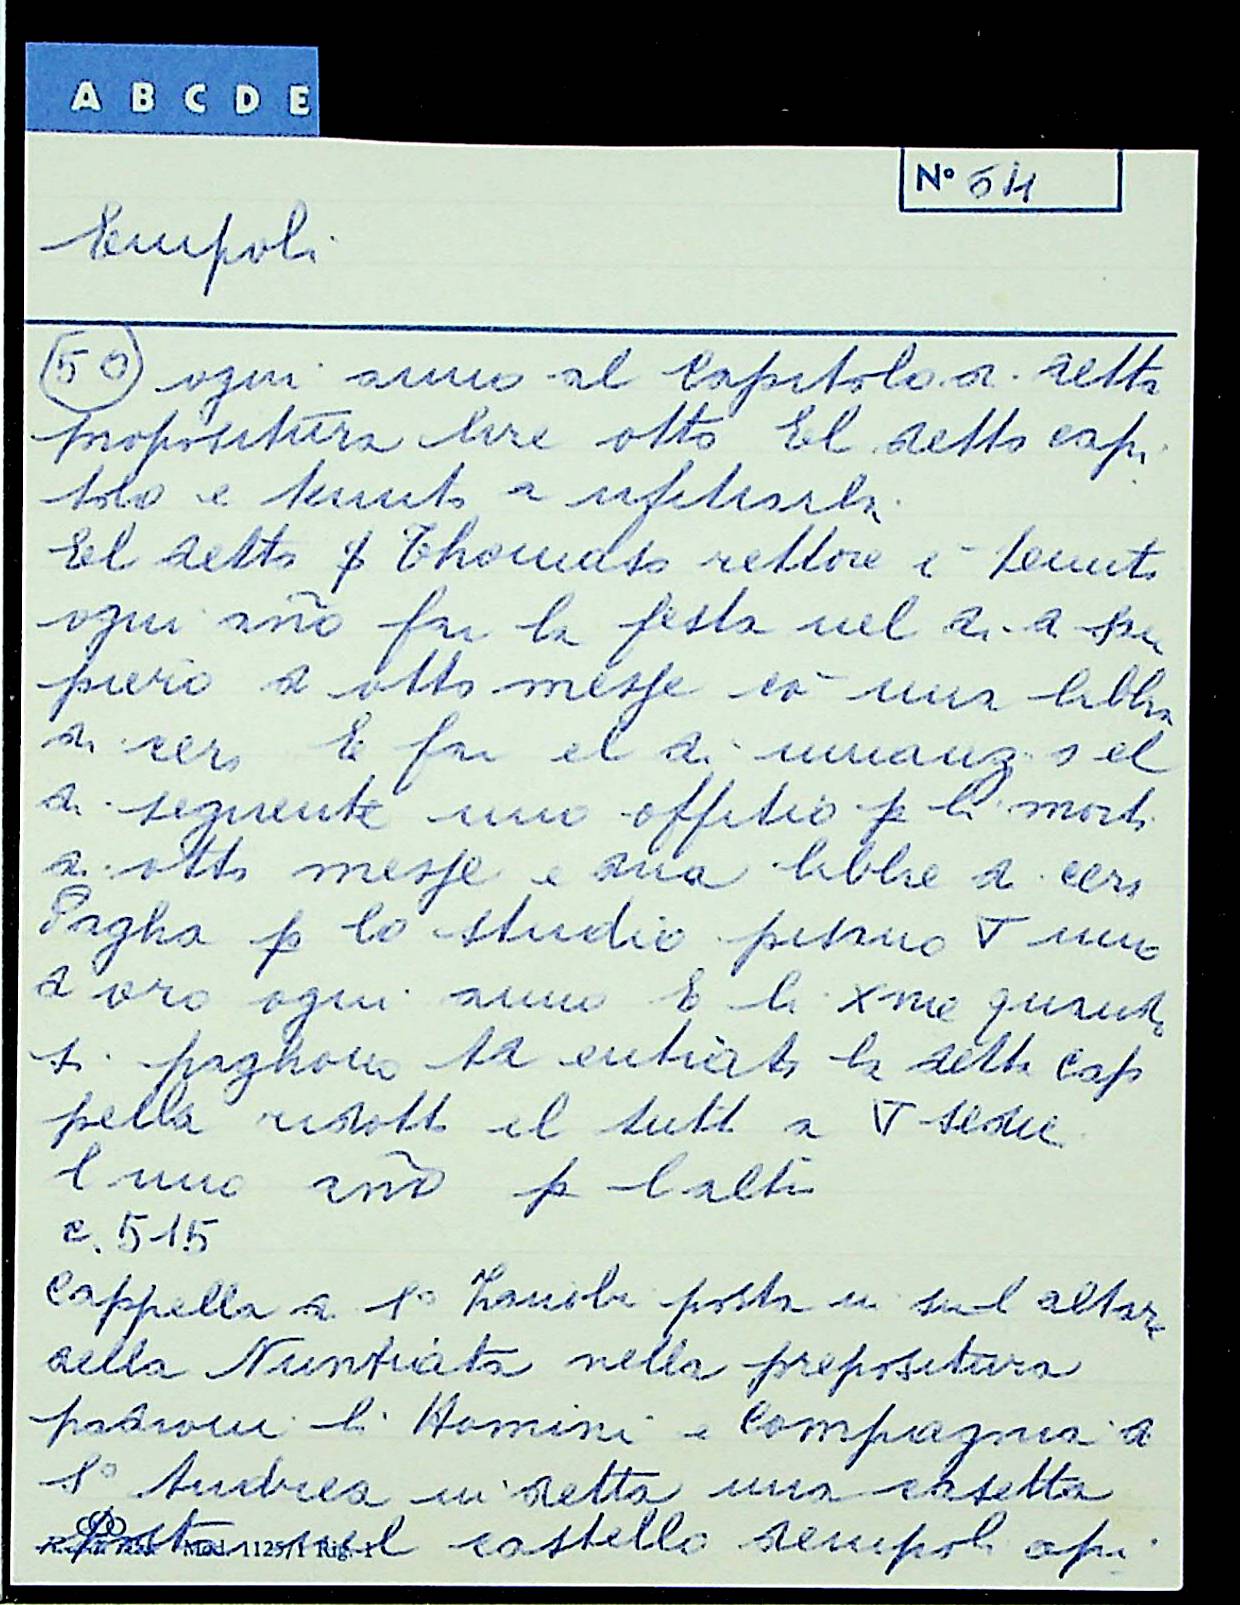 A B C D E
N° 54
Empoli
50 ogni anno al Capitolo di detta
propositura lire otto El detto capi
tolo e tenuto a ufitiarla.
El detto ꝑ Thomaso rettore è tenuto
ogni año far la festa nel di di San
piero di otto messe cō una libbra
di cera E far el di innanzi o el
di seguente uno offitio ꝑ li morti
di otto messe e dua libbre di cera
Pagha ꝑ lo studio pisano ∇ uno
d oro ogni anno E le Xme quando
si paghono Ha entrata la detta cap
pella ridotto el tutto a ∇ sedici
l uno año ꝑ l altro
c. 515
Cappella di S° Zanobi posta in sul altare
della Nuntiata nella prepositura
padroni li Homini e Compagnia di
S° Andrea in detta una casetta
posta nel castello dempoli api
Mod. 1125/1 Rig. 1